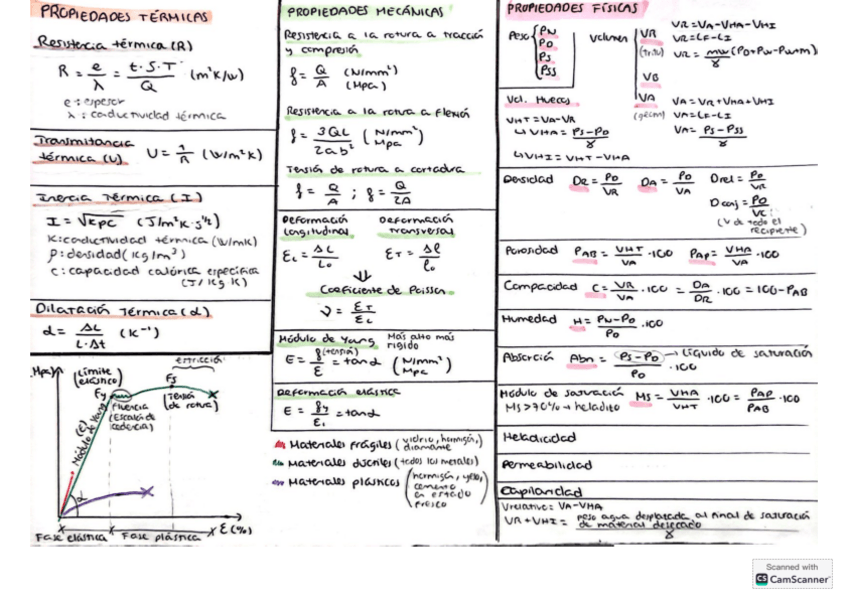 PROPIEDADES TÉRMICAS
Resistencia térmica (R)
R = e/λ = t·S·T/Q (m²K/W)
e: espesor
λ: conductividad térmica
Transmitancia
térmica (U) U = 1/R (W/m²K)
Inercia Térmica (I)
I = √kρc (J/m²K·s^1/2)
K: conductividad térmica (W/mK)
ρ: densidad (kg/m³)
c: capacidad calórica específica
(J/kg K)
Dilatación Térmica (α)
α = ΔL/L·Δt (K⁻¹)
Mpa
(Límite
elástico)
estricción
Fy
Fs
Fluencia
(Escalón de
cedencia)
Tensión
de rotura
(E)
Módulo de Yang
α
ε (%)
Fase elástica
Fase plástica
PROPIEDADES MECÁNICAS
Resistencia a la rotura a tracción
y compresión
f = Q/A (N/mm²)
(Mpa)
Resistencia a la rotura a flexión
f = 3QL/2ab² (N/mm²
Mpa)
Tensión de rotura a cortadura
f = Q/A ; f = Q/2A
Deformación
longitudinal
εL = ΔL/L₀
Deformación
transversal
εT = Δl/l₀
⇓
Coeficiente de Poisson
ν = εT/εL
Módulo de Yang
Más alto más
rígido
E = f(tensión)/ε = tanα (N/mm²
Mpa)
Deformación elástica
E = fy/ε₁ = tanα
Materiales frágiles (vidrio, hormigón,
diamante)
Materiales dúctiles (todos los metales)
Materiales plásticos (hormigón, yeso,
cemento
en estado
fresco)
PROPIEDADES FÍSICAS
Peso { PN
PD
PS
PSS
Volumen
VR
VB
VA
VR = VA-VHA-VHI
VR = LF-LI
VA = VR+VHA+VHI
VA = LF-LI
VA = PS-PSS/γ
Vol. Huecos
VHT = VA-VR
↳ VHA = PS-PD/γ
↳ VHI = VHT-VHA
Densidad DR = PD/VR DA = PD/VA Drel = PD/VR
D conj = PD/VC
(V de todo el
recipiente)
Porosidad PAB = VHT/VA ·100 PAP = VHA/VA ·100
Compacidad C = VR/VA ·100 = DA/DR ·100 = 100-PAB
Humedad H = PN-PD/PD ·100
Absorción Abn = PS-PD/PD ·100 → líquido de saturación
Módulo de saturación MS = VHA/VHT ·100 = PAP/PAB ·100
MS>70% → heladito
Heladicidad
Permeabilidad
Capilaridad
Vrelativo = VA-VHA
VR+VHI = peso agua desplazada al final de saturación
de material desecado/γ
Scanned with
CS CamScanner